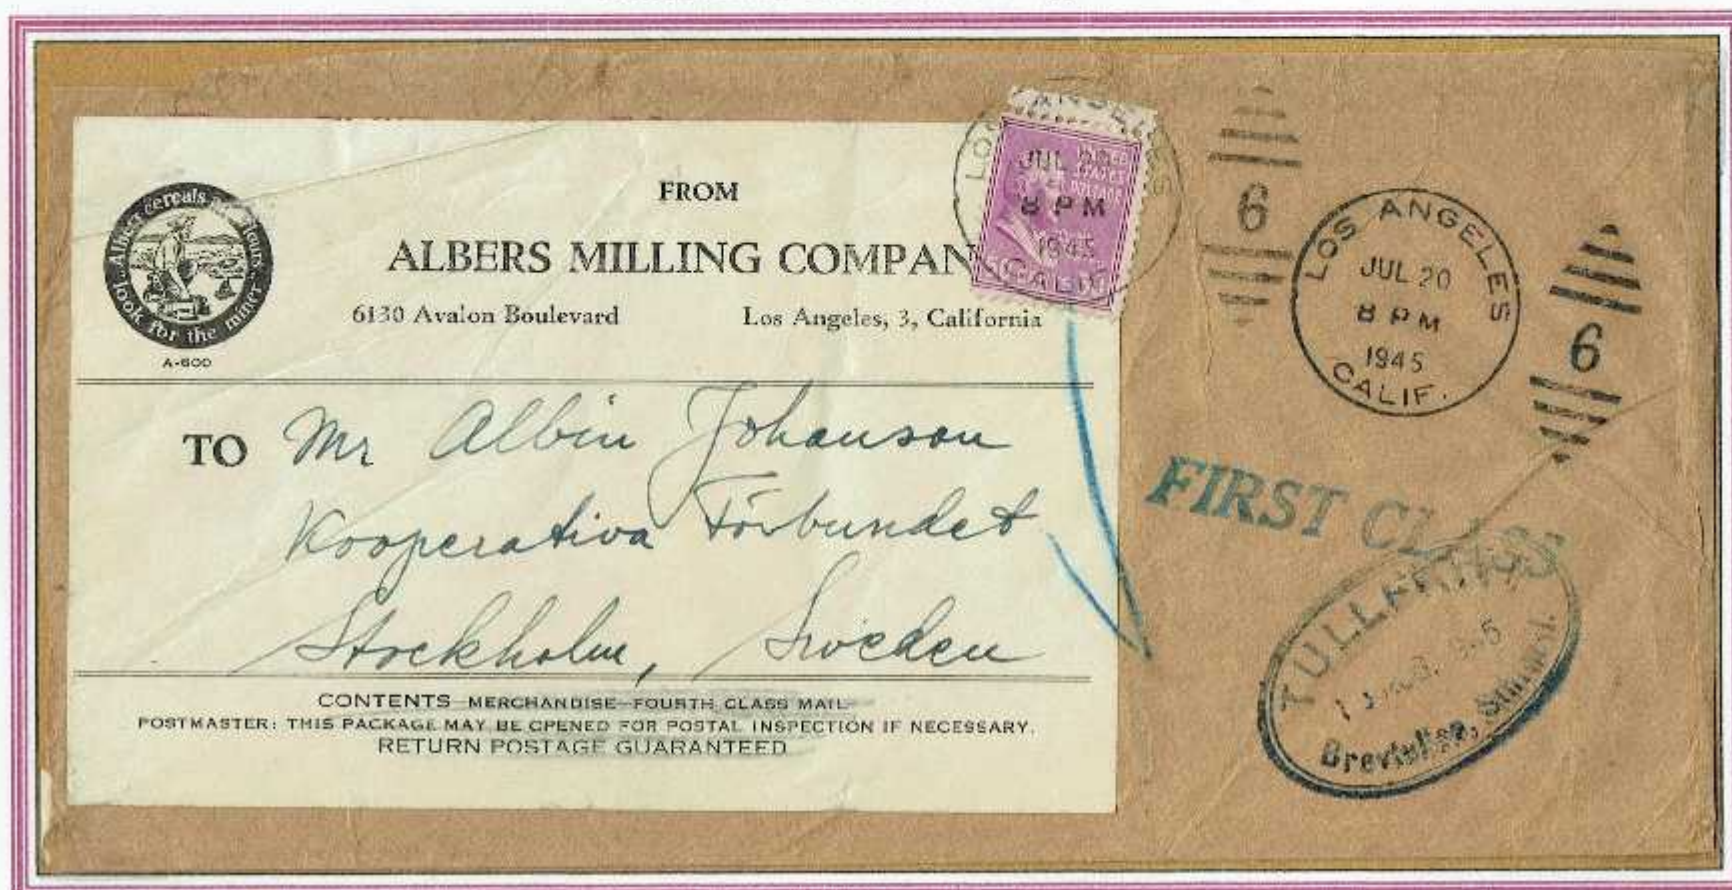 Albers cereals
look for the miner
A-600
FROM
ALBERS MILLING COMPAN
6130 Avalon Boulevard Los Angeles, 3, California
TO Mr Albin Johanson
Kooperativa Förbundet
Stockholm, Sweden
CONTENTS—MERCHANDISE—FOURTH CLASS MAIL
POSTMASTER: THIS PACKAGE MAY BE OPENED FOR POSTAL INSPECTION IF NECESSARY.
RETURN POSTAGE GUARANTEED
LOS ANGELES
JUL 20
8 PM
1945
CALIF.
STATES
POSTAGE
6
LOS ANGELES
JUL 20
8 PM
1945
CALIF.
6
FIRST CLASS
TULLFRITT